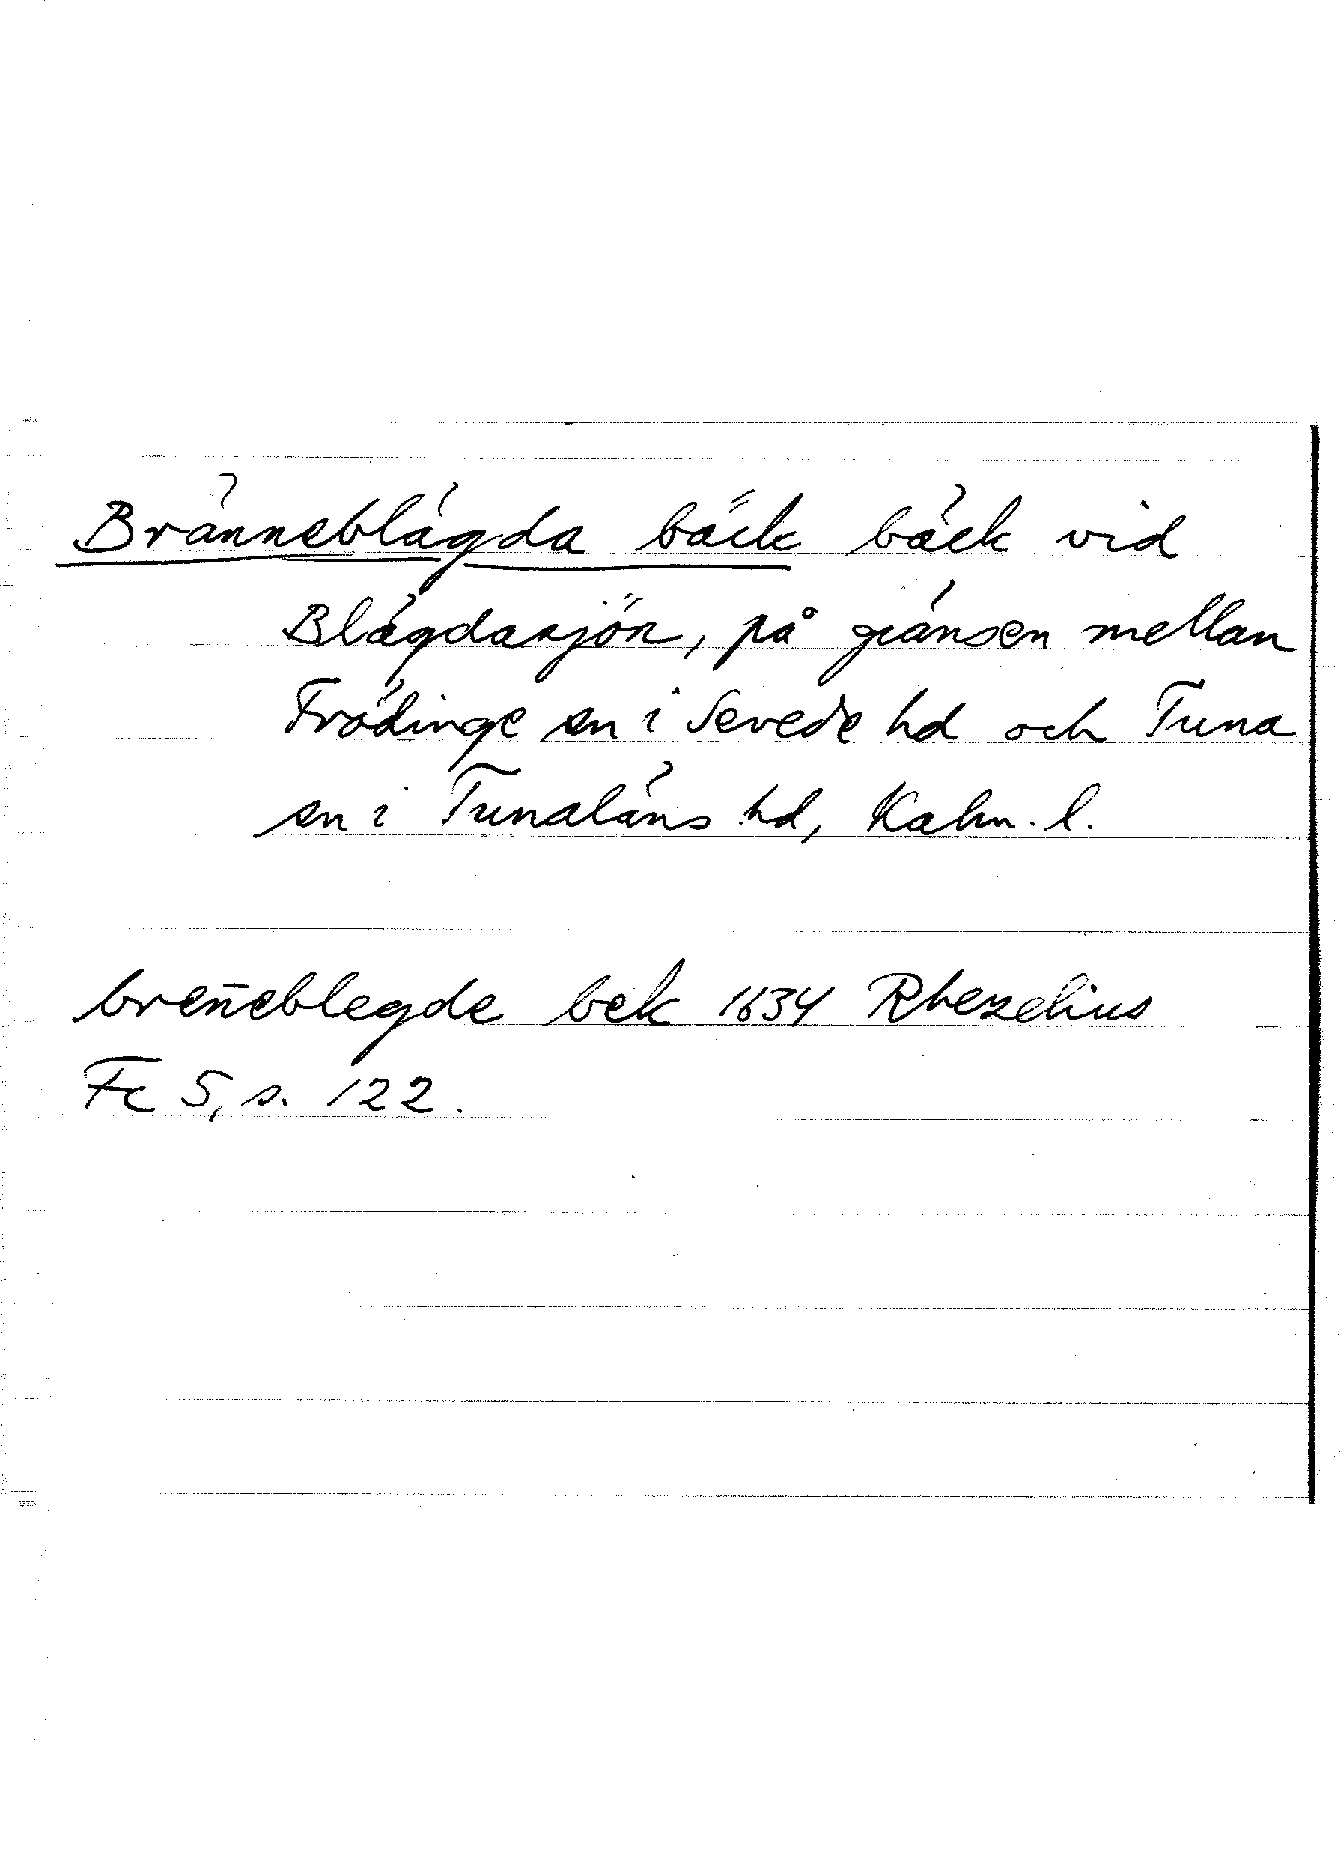 Bränneblägda bäck bäck vid
Blägdasjön, på gränsen mellan
Frödinge sn i Sevede hd och Tuna
sn i Tunaläns hd, Kalm. l.
breñeblegde bek 1634 Rhezelius
Fc 5, s. 122.